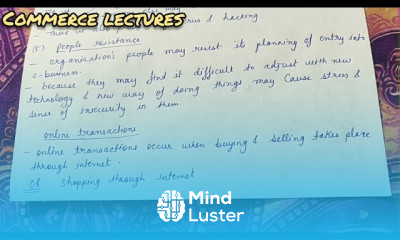 COMMERCE LECTURES
- There is also & hacking
(5) people resistance
- organisation's people may resist its planning of entry into
e-business.
- because they may find it difficult to adjust with new
technology & new way of doing things may cause stress &
sense of insecurity in them.
online transactions
- online transactions occur when buying & selling takes place
through internet.
OR shopping through internet
Mind
Luster